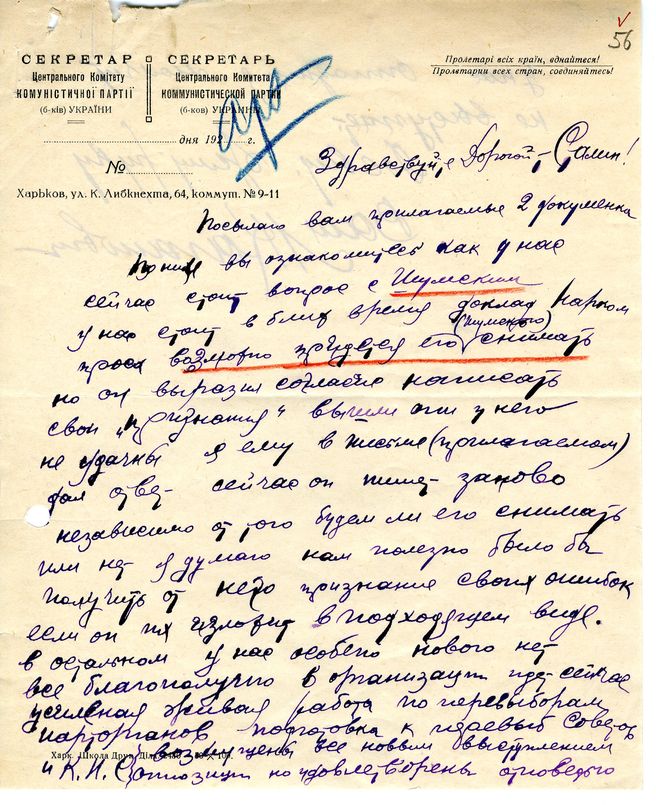 56
СЕКРЕТАР
Центрального Комітету
КОМУНІСТИЧНОЇ ПАРТІЇ
(б-ків) УКРАЇНИ
СЕКРЕТАРЬ
Центрального Комитета
КОММУНИСТИЧЕСКОЙ ПАРТИИ
(б-ков) УКРАИНЫ
Пролетарі всіх країн, єднайтеся!
Пролетарии всех стран, соединяйтесь!
дня 192 г.
№
Харьков, ул. К. Либкнехта, 64, коммут. № 9-11
Здравствуйте Дорогой т. Сталин!
Посылаю вам прилагаемые 2 документа
вы ознакомитесь как у нас
сейчас стоит вопрос с Шумским
у нас стоит в ближ время доклад Нарком
(Шумского)
проса возможно придется его снимать
но он выразил согласие написать
свои „признания" вышли они у него
не удачны я ему в письме (прилагаемом)
дал ответ сейчас он пишет заново
независимо от того будем ли его снимать
или нет я думаю нам полезно было бы
получить от него признание своих ошибок
если он их изложит в подходящем виде.
в остальном у нас особено нового нет
все благополучно в организации идет сейчас
усиленая живая работа по перевыборам
парторганов подготовка к
Харк. Школа Друк. Діла
возмущены все новым выступлением
оппозиции но удовлетворены отповедью